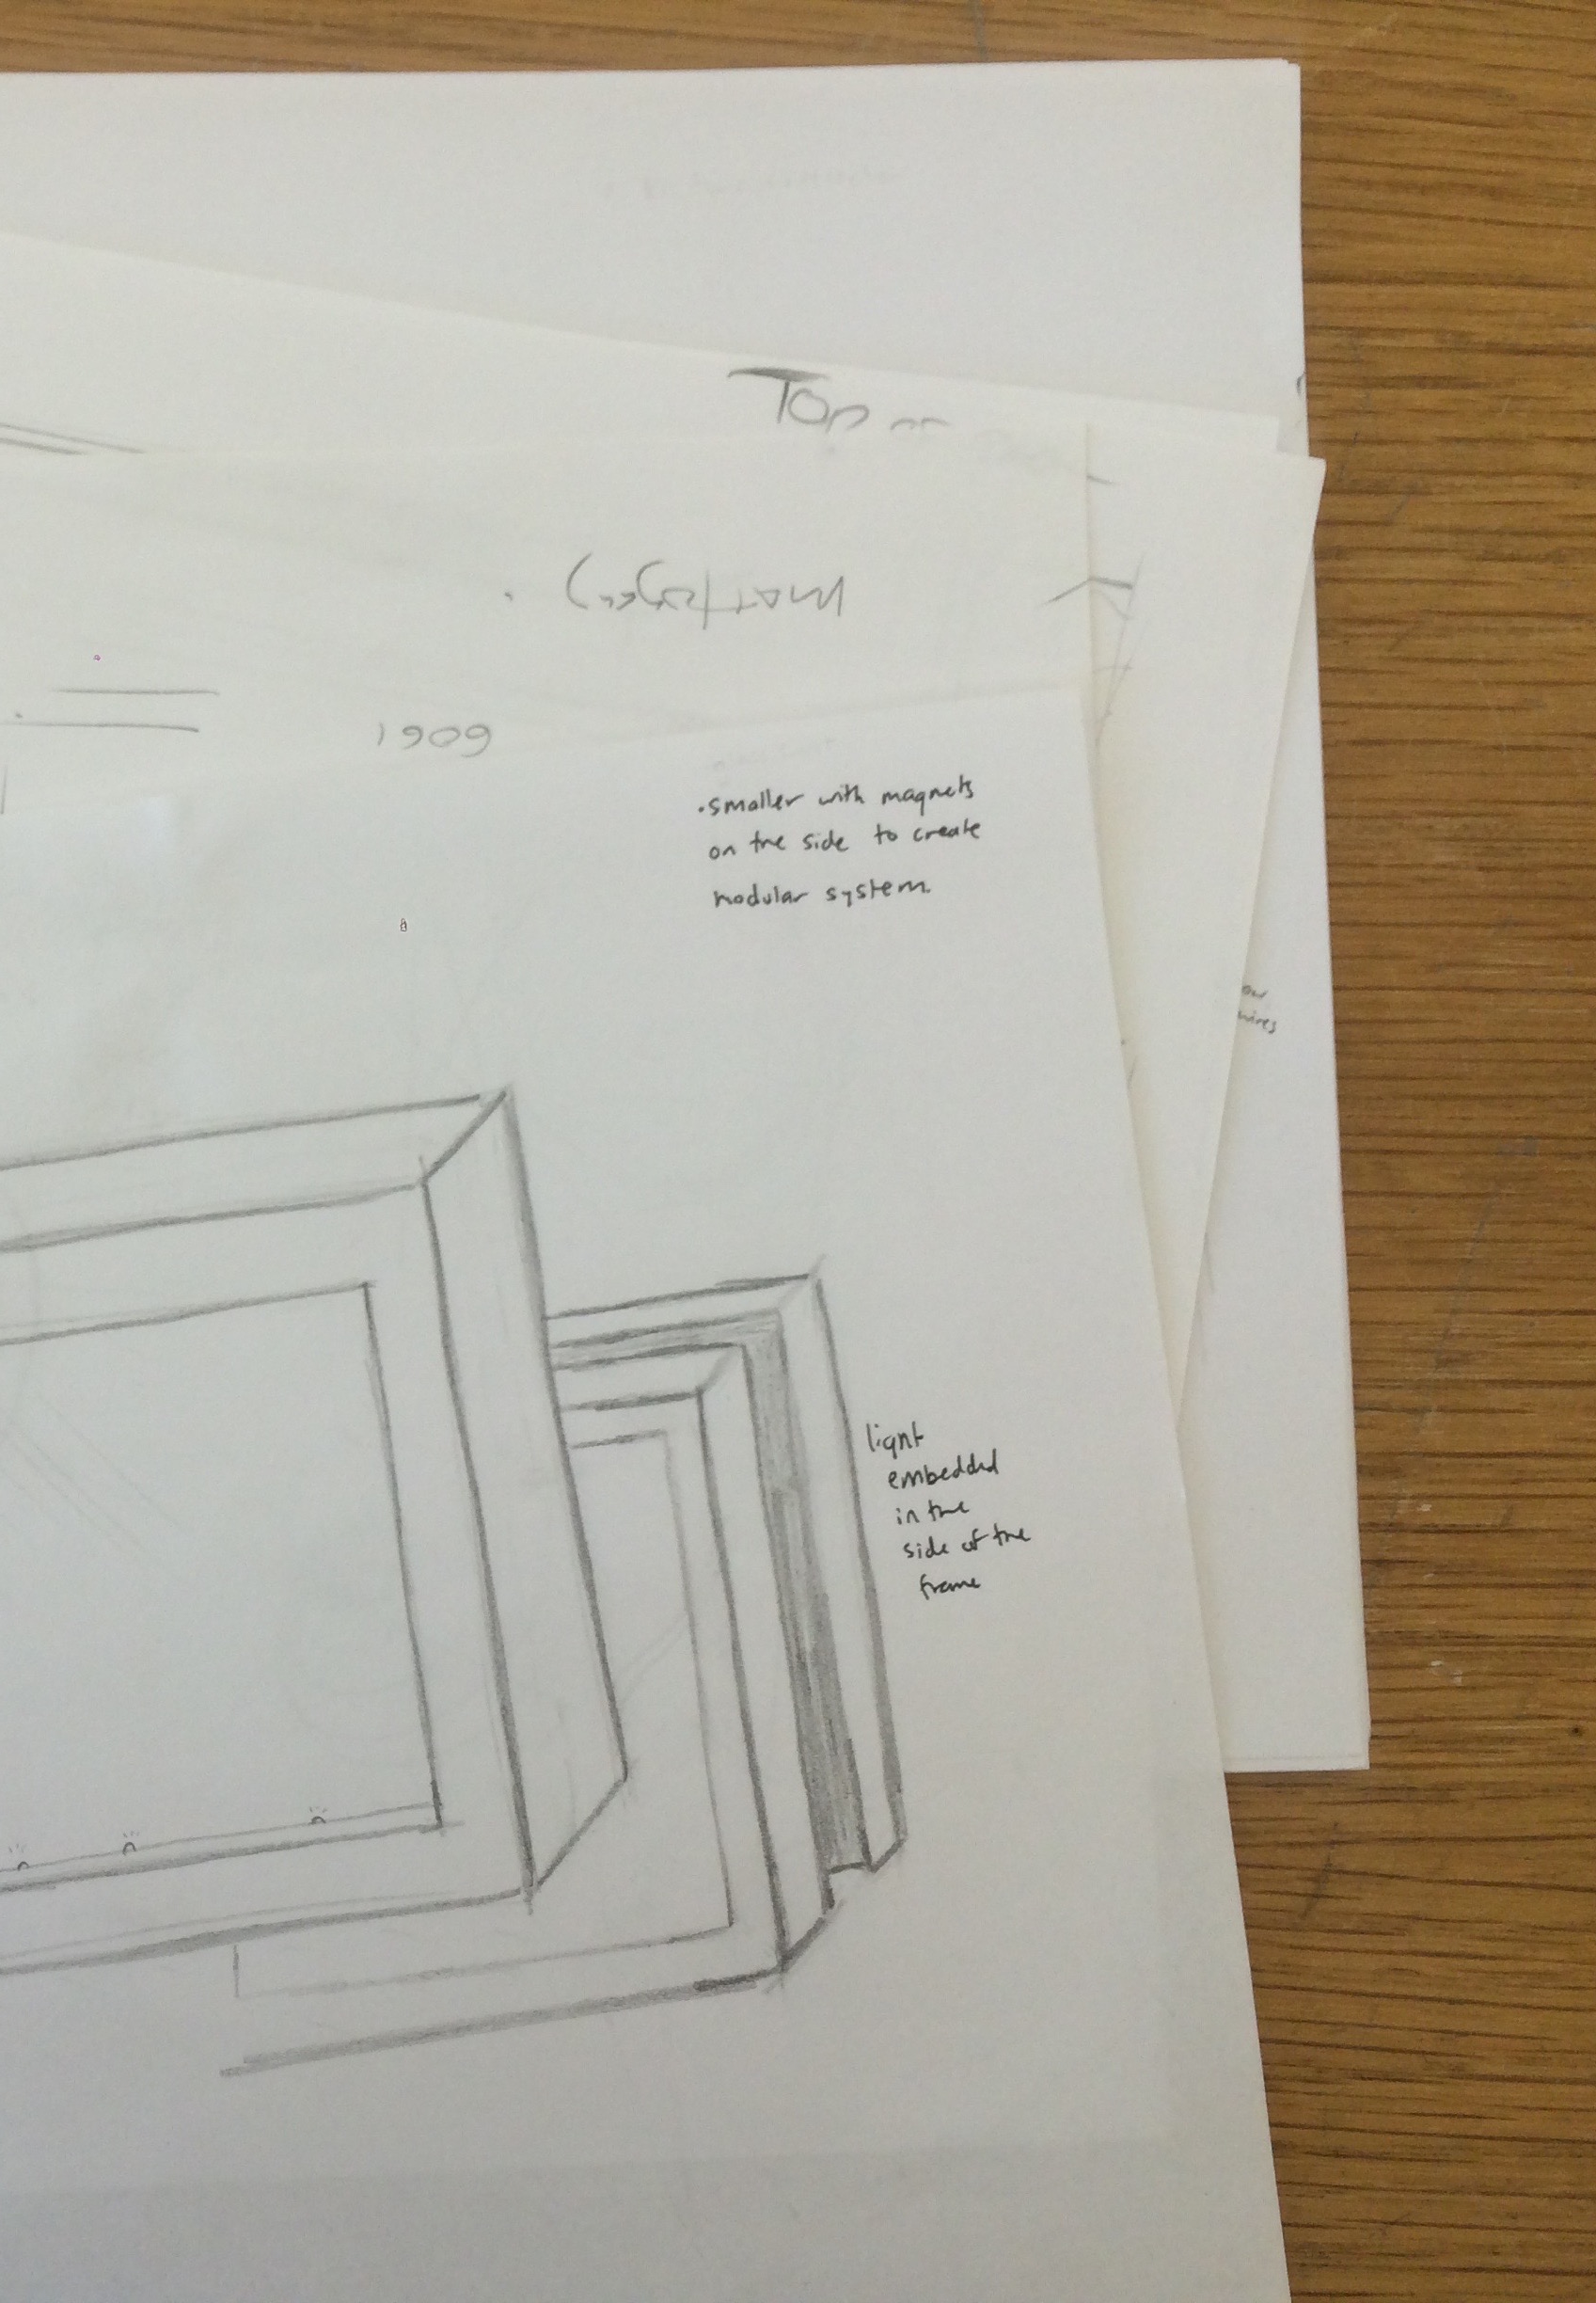 Top
1909
• smaller with magnets
on the side to create
modular system
our
wires
light
embedded
in the
side of the
frame